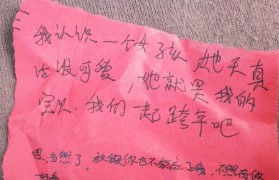 我认识一个女孩 她天真
活泼可爱，她就是我的
宝贝. 我们一起跨年吧
恩,当然了，放假你也不能忘了我，不然